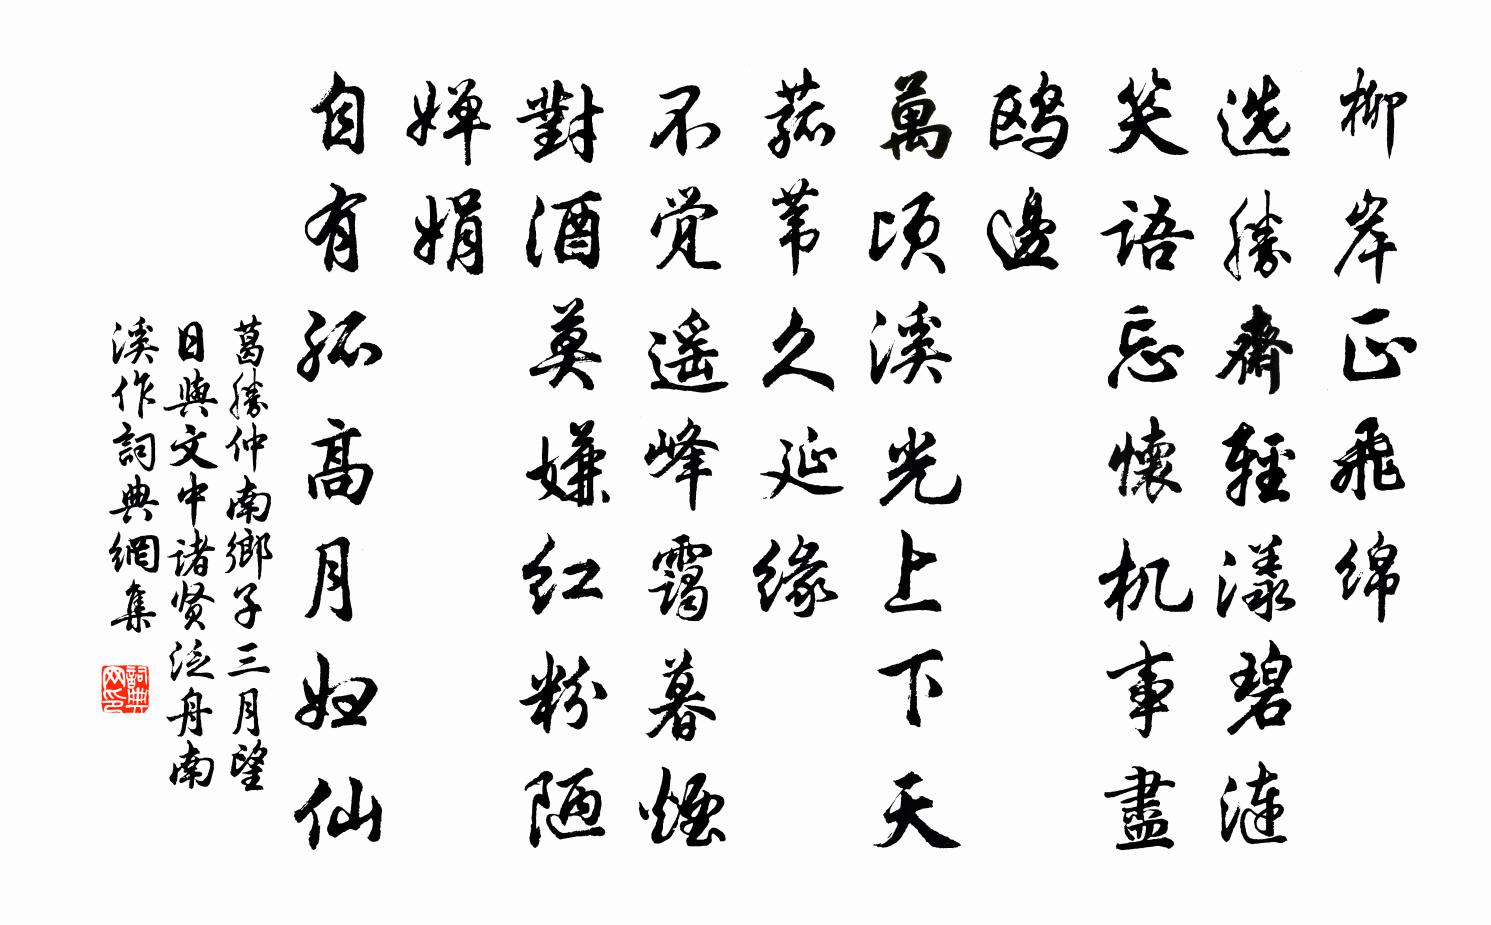 柳岸正飛綿
选勝齋輕漾碧漣
笑語忘懷机事盡
鸥邊
萬頃溪光上下天
菰苇久延缘
不觉遥峰靄暮煙
對酒莫嫌红粉陋
婵娟
自有孤高月妇仙
葛勝仲南鄉子三月望
日與文中诸贤泛舟南
溪作詞典網集
詞典网印